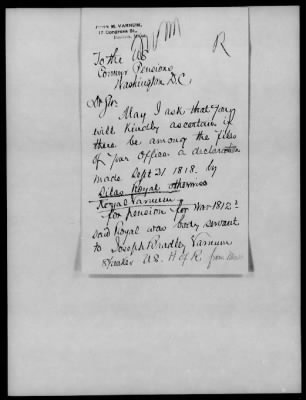 JOHN M. VARNUM,
17 Congress St.,
R
To the U.S.
Commr Pensions
Washington D.C.
Dr Sir,
May I ask that you
will kindly ascertain if
there be among the files
of your Office a declaration
made Sept 21 1818. by
Silas Royal otherwise
Royal Varnum
for pension for War 1812?
said Royal was body servant
to Joseph Bradley Varnum
Speaker U.S. H of R from Mass